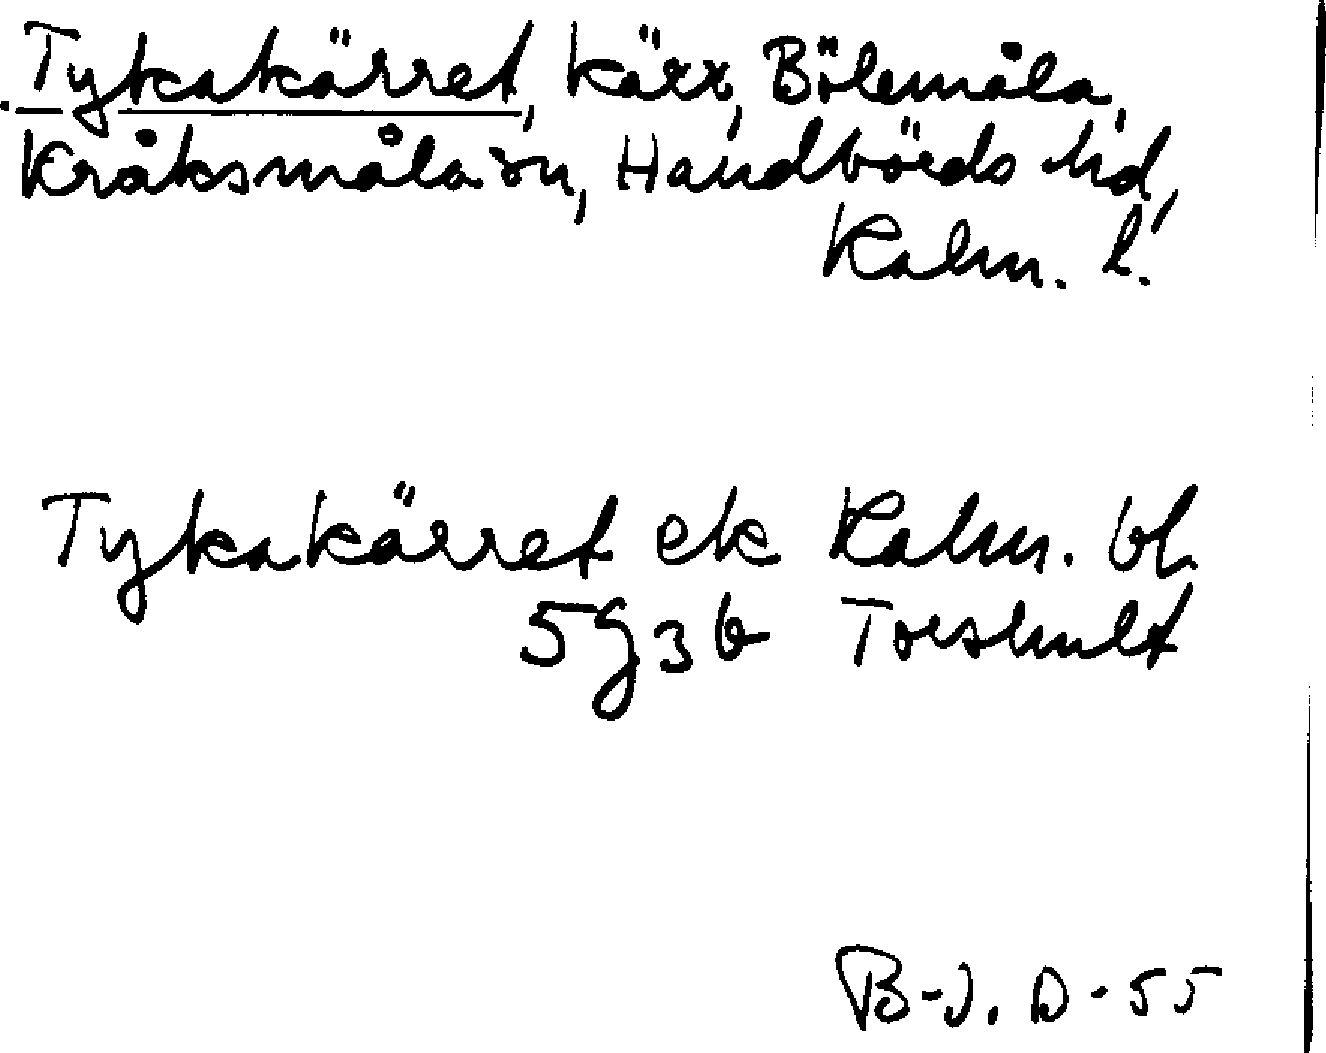 Tykakärret, kärr, Bölemåla,
Kråksmåla sn, Handbörds hd,
Kalm. l.
Tykakärret ek Kalm. bl.
5g3b Torshult
B-J. D-55